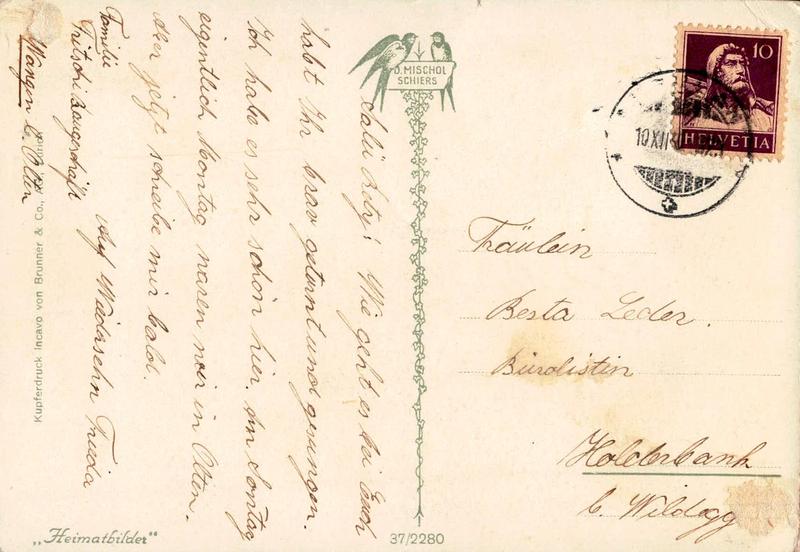 D. MISCHOL
SCHIERS
10
HELVETIA
10 XII 30
Salü Roty! Wie geht es bei Euch
habt Ihr brav geturnt und gesungen.
Ich habe es sehr schön hier. Am Sontag
eigentlich Montag waren wir in Olten.
Aber jetzt schreibe mir bald.
Auf Wiedersehn Frieda
Familie
Fritschi Baugeschäft
Wangen b. Olten
Fräulein
Berta Leder.
Bürolistin
Holderbank
b. Wildegg
Kupferdruck Incavo von Brunner & Co.,
„Heimatbilder"
37/2280